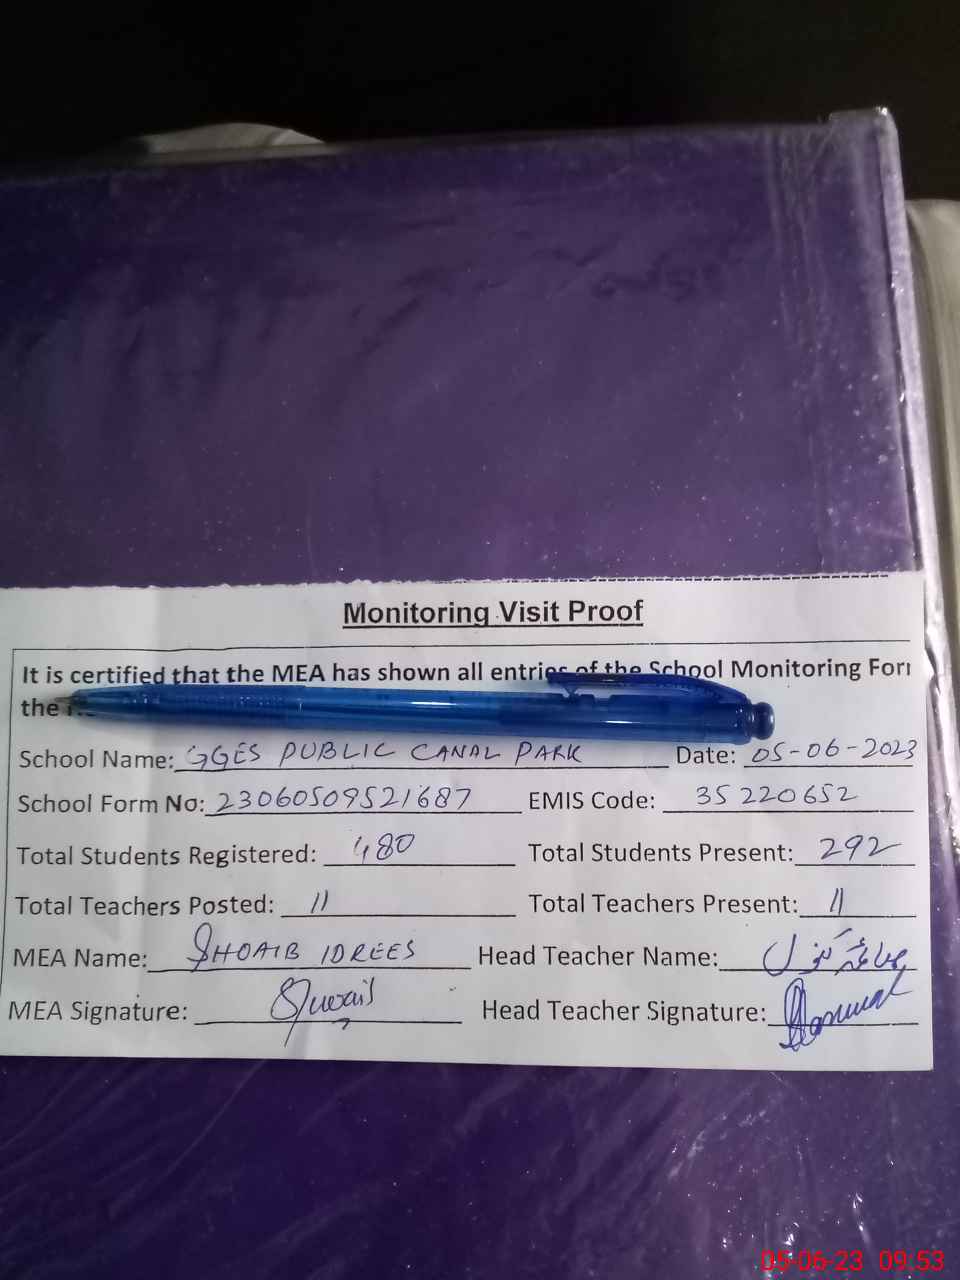 Monitoring Visit Proof
It is certified that the MEA has shown all entries of the School Monitoring For
the
School Name: GGES PUBLIC CANAL PARK Date: 05-06-2023
School Form No: 23060509521687 EMIS Code: 35220652
Total Students Registered: 480 Total Students Present: 292
Total Teachers Posted: 11 Total Teachers Present: 11
MEA Name: SHOAIB IDREES Head Teacher Name:
MEA Signature: Head Teacher Signature:
05-06-23 09:53